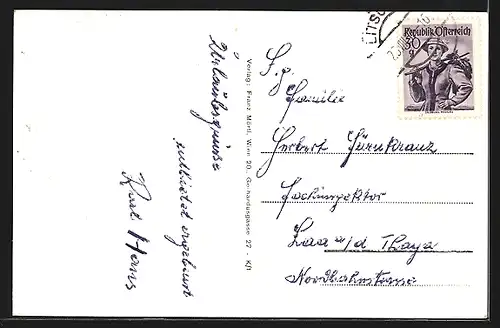 Urlaubsgrüße
entbietet ergebenst
Karl Hans
Verlag: Franz Mörtl, Wien 20., Gerhardusgasse 27 - K/1
EITSC
Republik Österreich
30
g
Familie
Herbert
Laa a/d Thaya
Nordbahnstrasse